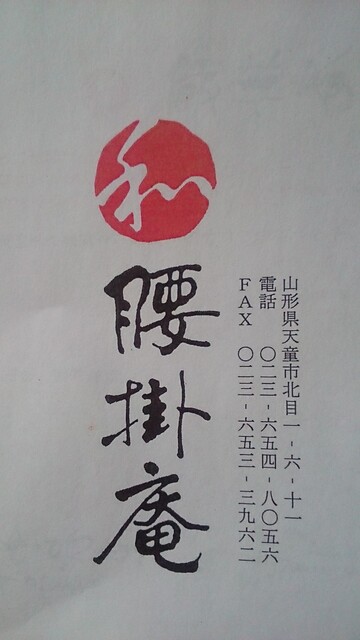 山形県天童市北目一-六-十一
電話 〇二三-六五四-八〇五六
FAX 〇二三-六五三-三九六二
和
腰掛庵